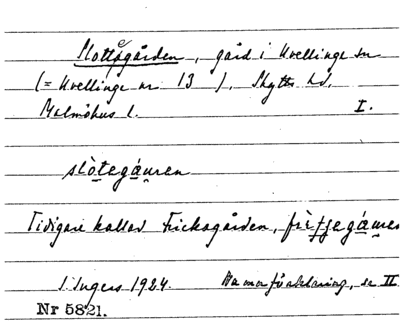 Slottsgården, gård i Kvellinge sn
(= Kvellinge nr 13), Skytts hd,
Malmöhus l. I.
slòtegáuren
Tidigare kallad Frickagården,
I. Ingers 1924. Namnförklaring, se II
Nr 5821.